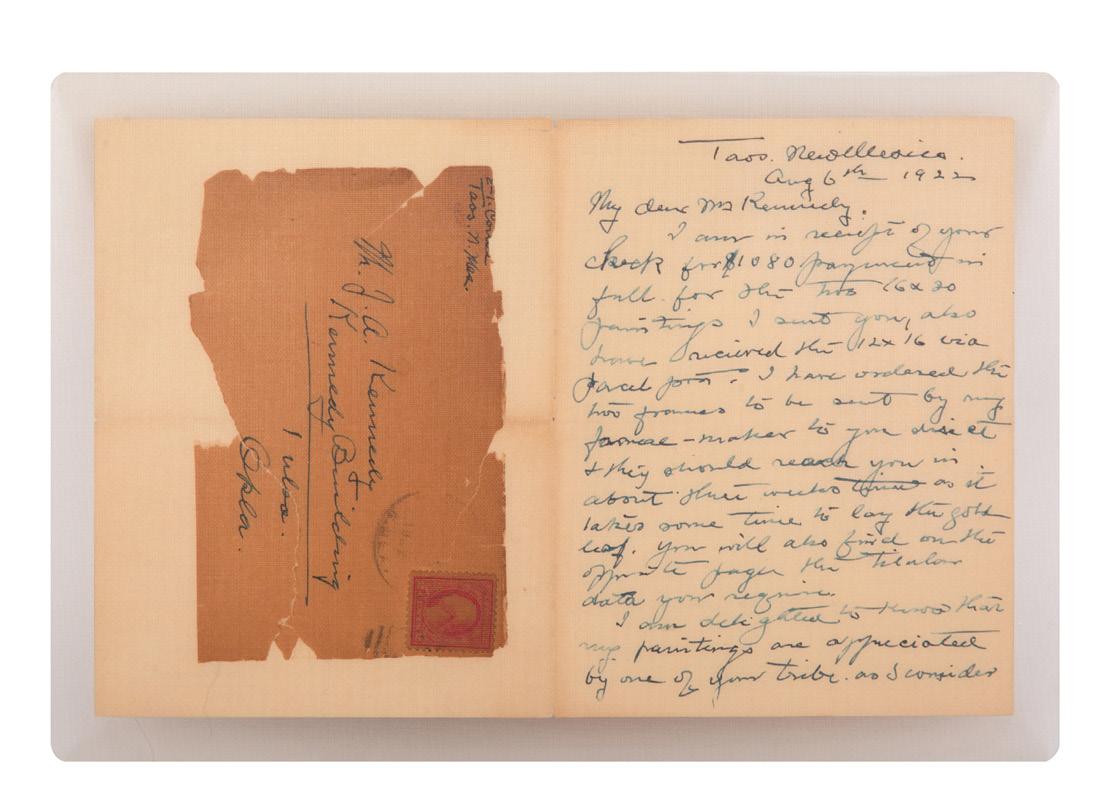 E. I. Couse
Taos. N. Mex.
Mr. J. A. Kennedy
Kennedy Building
Tulsa.
Okla.
Taos. New Mexico.
Aug 6th 1922
My dear Mr Kennedy.
I am in receipt of your
check for $1080 payment in
full for the two 16x20
paintings I sent you, also
have recieved the 12x16 via
parcel post. I have ordered the
two frames to be sent by my
frame-maker to you direct
& they should reach you in
about three weeks time as it
takes some time to lay the gold
leaf. You will also find on the
opposite pages the
data you require.
I am delighted to know that
my paintings are appreciated
by one of your tribe. as I consider